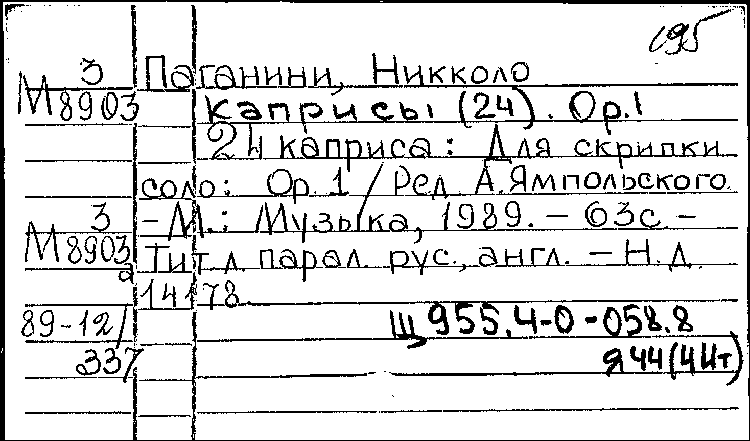 195
3 Паганини, Никколо
М8903 Каприсы (24). Op.1
24 каприса: Для скрипки
соло: Op. 1 / Ред А.Ямпольского
3 - М.: Музыка, 1989. - 63с. -
М8903 Тит л парал. рус., англ. - Н.д.
а 14178
89-12/ Щ955.4-0-058.8
337 Я44(4Ит)